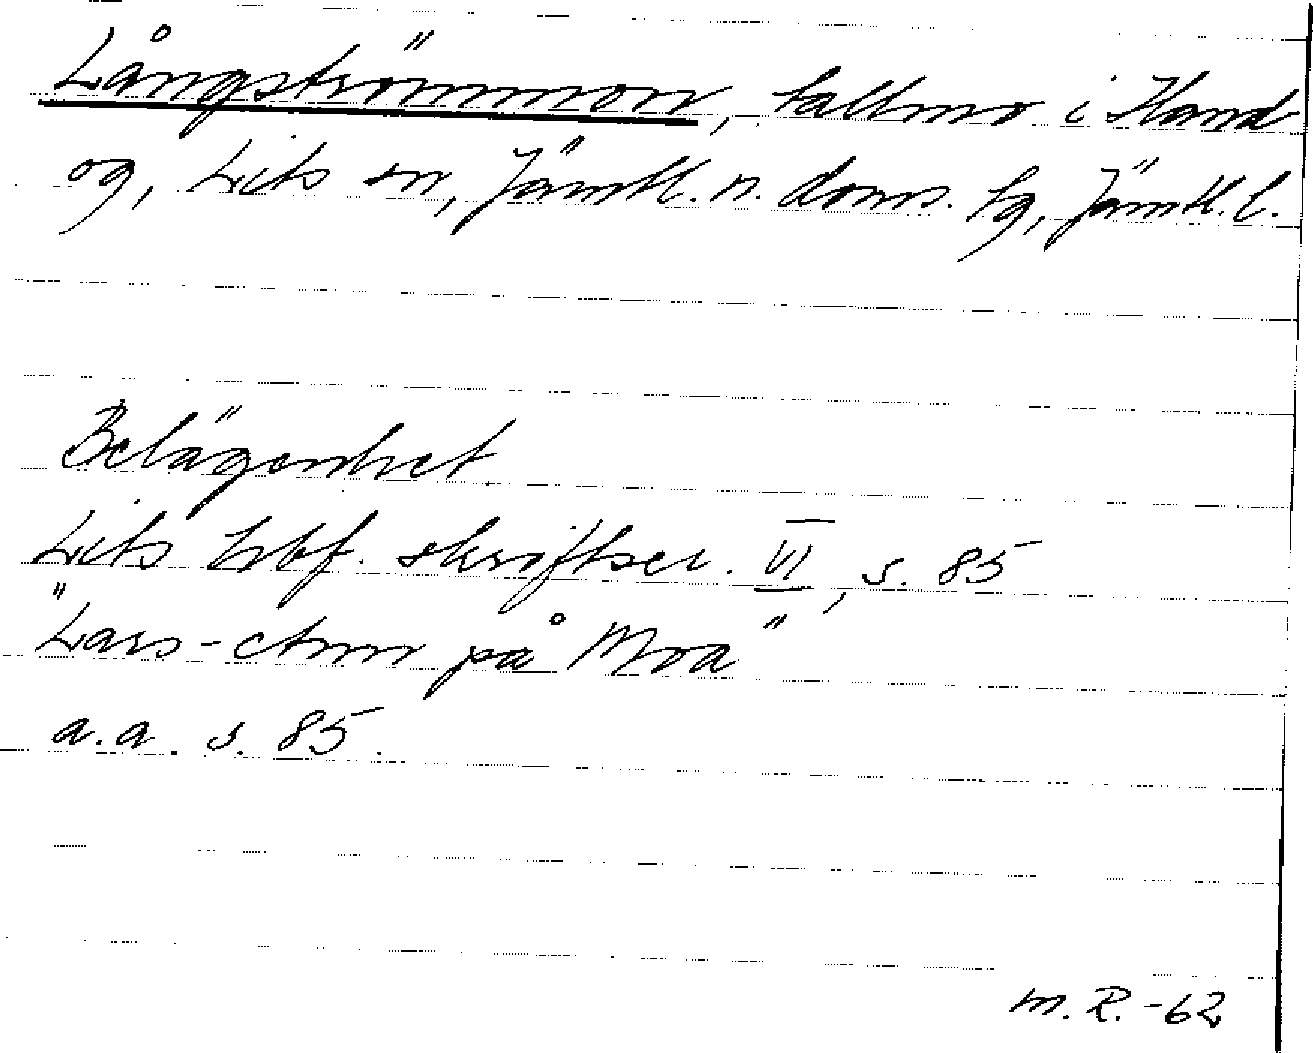 Långströmmon, tallmo i Hand
og, Lits sn, Jämtl. n. doms. tg, Jämtl. l.
Belägenhet
Lits hbf. skriftser. VI, s. 85
"Lars- på Moa"
a.a. s. 85.
M. R. -62